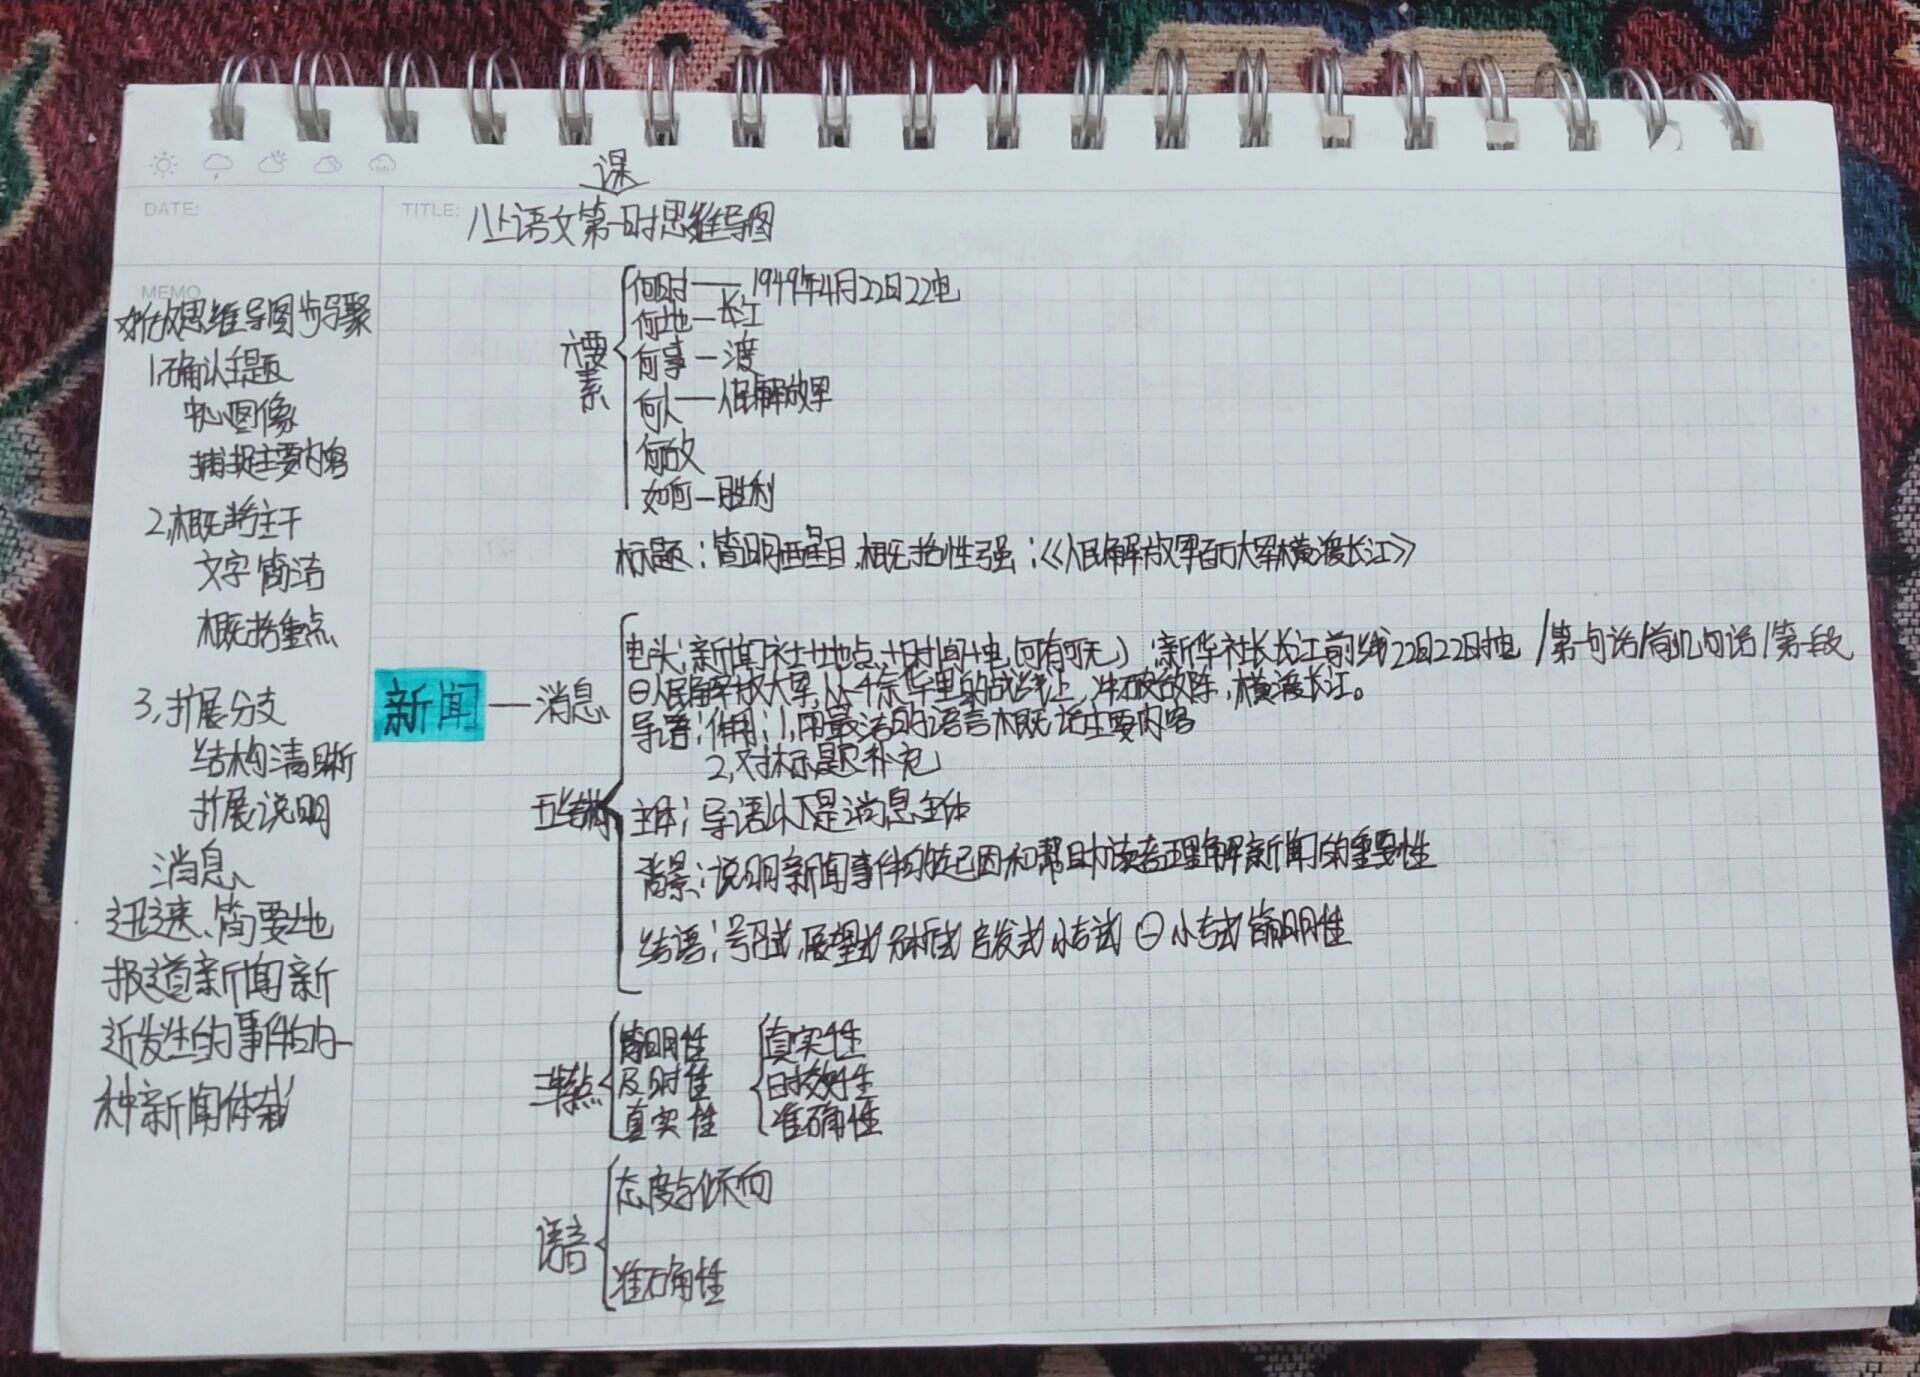 课
DATE:
TITLE: 八上语文第一时思维导图
MEMO
思维导图步骤
1.确认主题
中心图像
捕捉主要内容
2.概括主干
文字简洁
概括重点
3.扩展分支
结构清晰
扩展说明
消息
迅速、简要地
报道新闻新
近发生的事件的一
种新闻体裁
新闻—消息
六要素
何时——1949年4月22日22电
何地—长江
何事—渡
何人—人民解放军
何故
如何—胜利
标题:简明醒目,概括性强:《人民解放军百万大军横渡长江》
五结构
电头:新闻社+地点+时间+电(可有可无) 新华社长长江前线22日22日时电 /第一句话/前几句话/第一段
人民解放大军,从千余华里的战线上,冲破敌阵,横渡长江。
导语:作用:1,用最洁的语言概括主要内容
2,对标题补充
主体:导语以下是消息主体
背景:说明新闻事件的起因和帮助读者理解新闻的重要性
结语:号召式,展望式 分析式 启发式 小专式 小专式 简明性
三特点
简明性
及时性
真实性
真实性
时效性
准确性
语言
态度与倾向
准确性